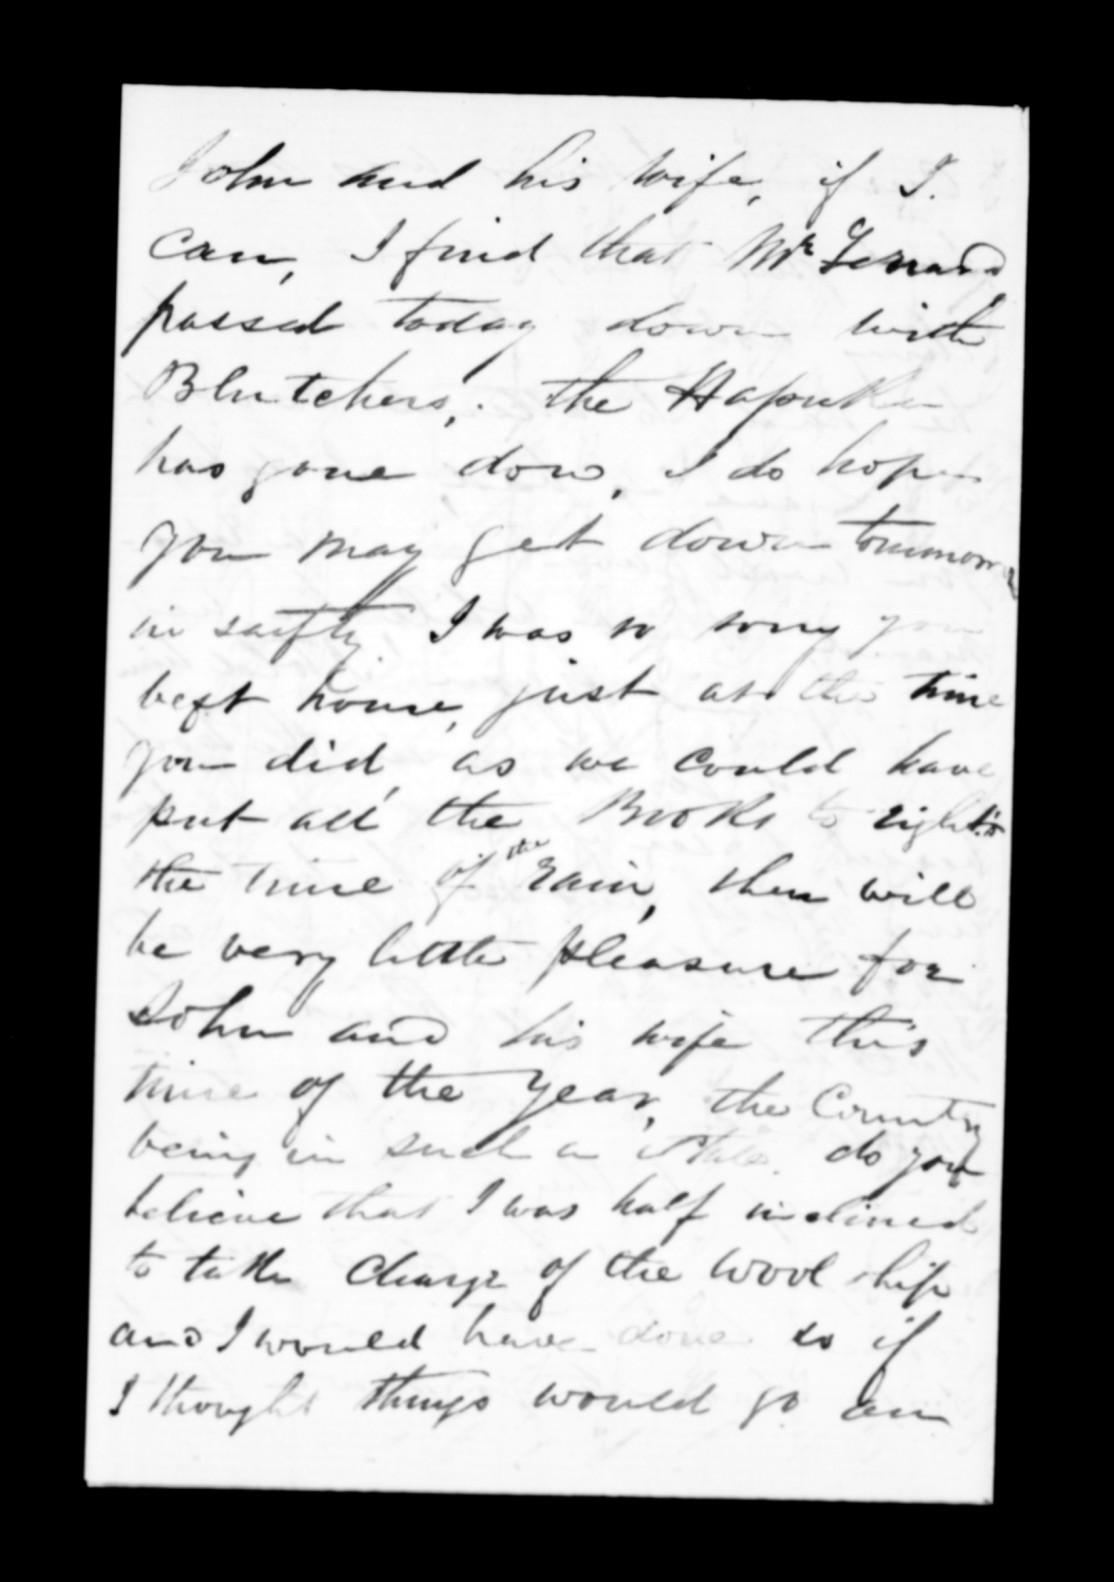 John and his wife, if I.
can, I find that Mr
passed today down with
Blutchers,. the Hapuka
has gone dow, I do hope
you may get down tommorow
in saifty I was so sorry you
left home, just at the time
you did, as we could have
put all the Books to right in
the time of the rain, then will
be very little pleasure for
John and his wife this
time of the year, the Country
being in such a state. do you
believe that I was half inclined
to take charge of the wool ship
and I would have done so if
I thought things would go on